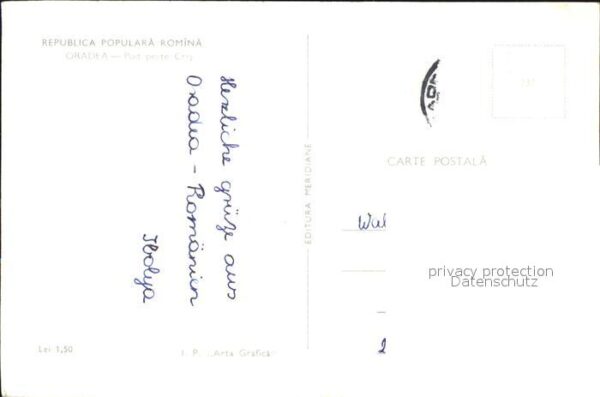 REPUBLICA POPULARĂ ROMÎNĂ
ORADEA — Pod peste Criş
Herzliche grüße aus
Oradea - Românien
Ibolya
EDITURA MERIDIANE
CARTE POSTALĂ
privacy protection
Datenschutz
Lei 1,50
I. P. „Arta Grafică"